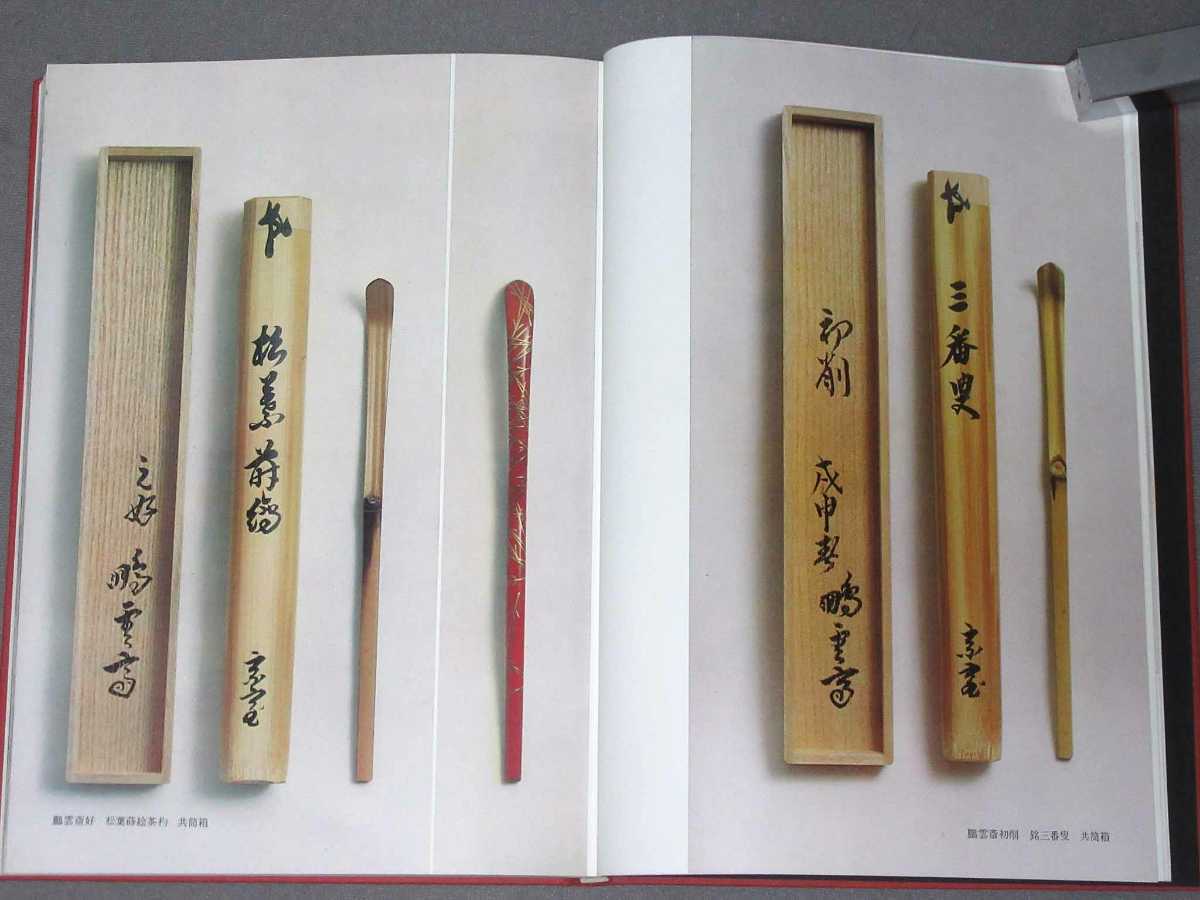 之好 鵬雲斎
松葉蒔繪 宗室
鵬雲斎好 松葉蒔絵茶杓 共筒箱
初削 戊申春 鵬雲斎
三番叟 宗室
鵬雲斎初削 銘三番叟 共筒箱